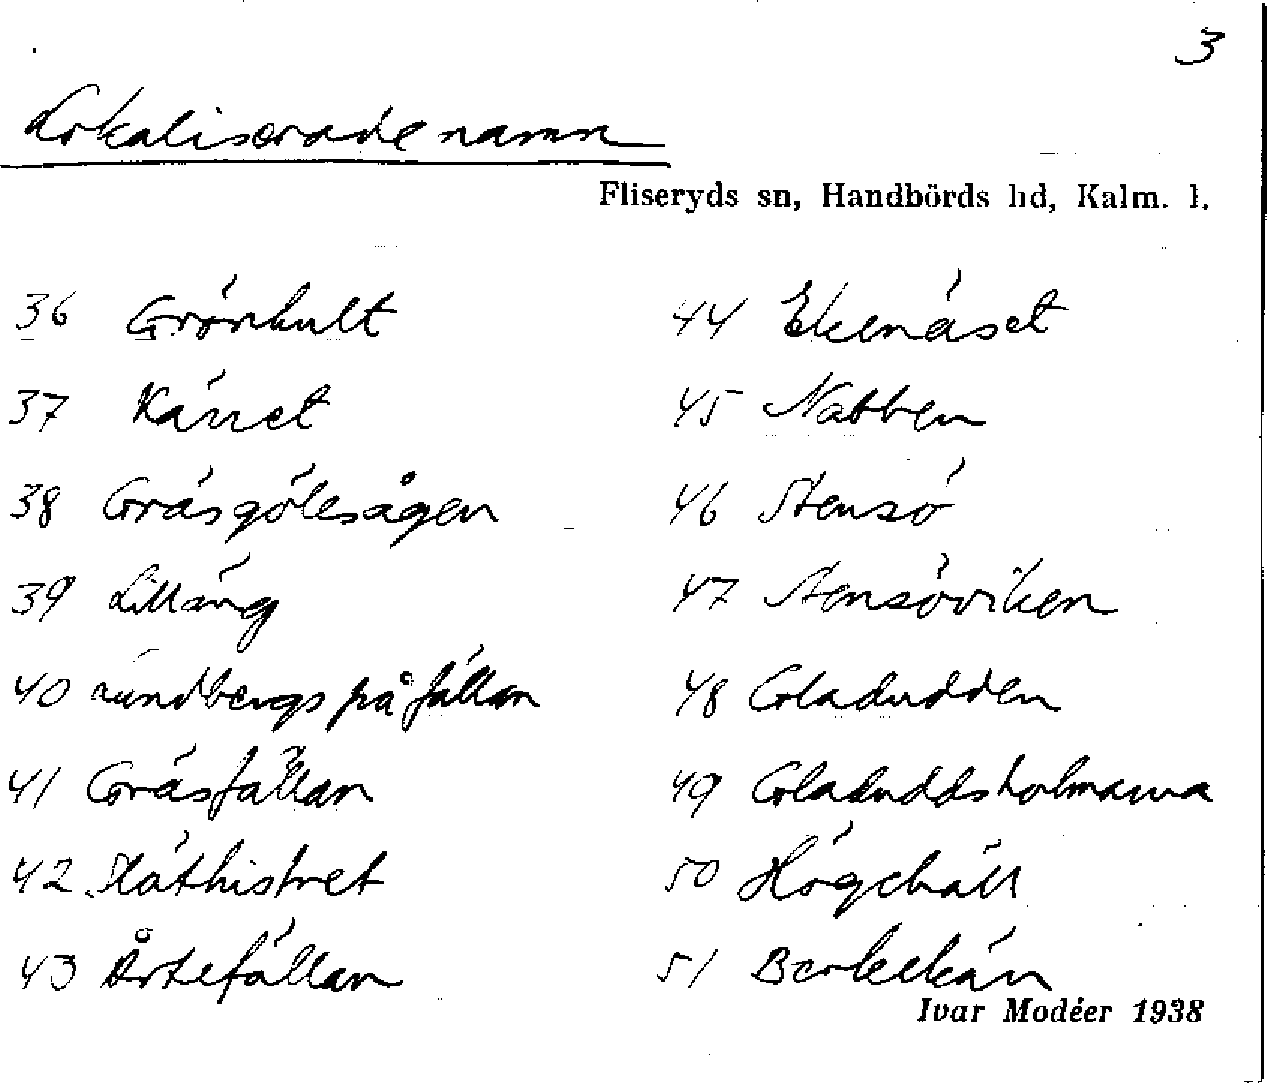 3
Lokaliserade namn
Fliseryds sn, Handbörds hd, Kalm. l.
36 Grönhult
37 Kärret
38 Gräsgölesågen
39 Lilläng
40 Lundbergs på fällan
41 Gräsfällan
42 Släthistret
43 Årtefällan
44 Ekenäset
45 Nabben
46 Stensö
47 Stensöviken
48 Gladudden
49 Gladuddsholmarna
50 Högehäll
51 Berkekärr
Ivar Modéer 1938